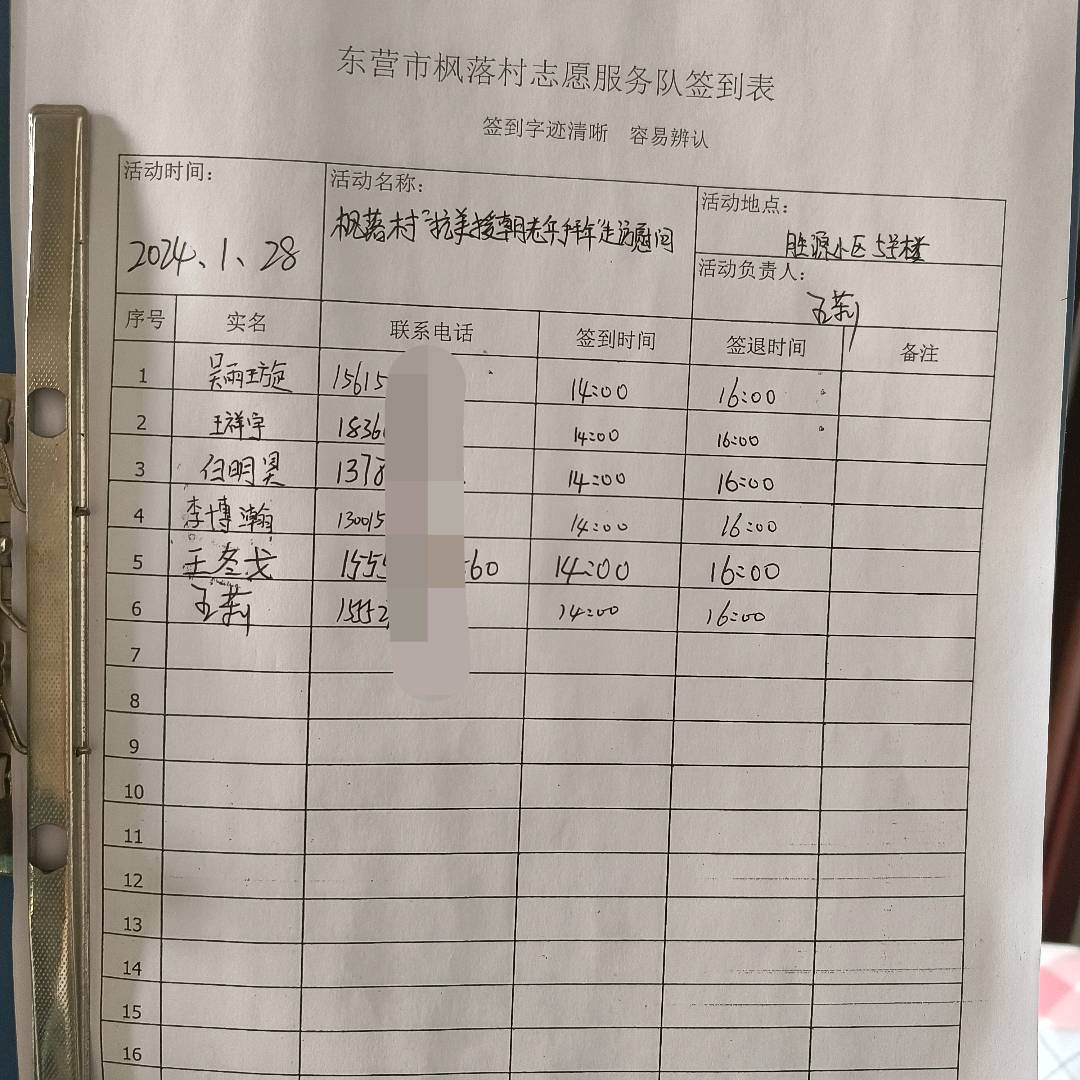 东营市枫落村志愿服务队签到表
签到字迹清晰 容易辨认
活动时间: 活动名称: 活动地点:
2024、1、28 枫落村"抗美援朝老兵 年"走访慰问 胜源小区5号楼
活动负责人:
王莉
序号 实名 联系电话 签到时间 签退时间 备注
1 吴雨璇 15615 14:00 16:00
2 王祥宇 1836 14:00 16:00
3 伯明昊 1378 14:00 16:00
4 李博瀚 130015 14:00 16:00
5 王冬戈 1555 60 14:00 16:00
6 王莉 15552 14:00 16:00
7
8
9
10
11
12
13
14
15
16